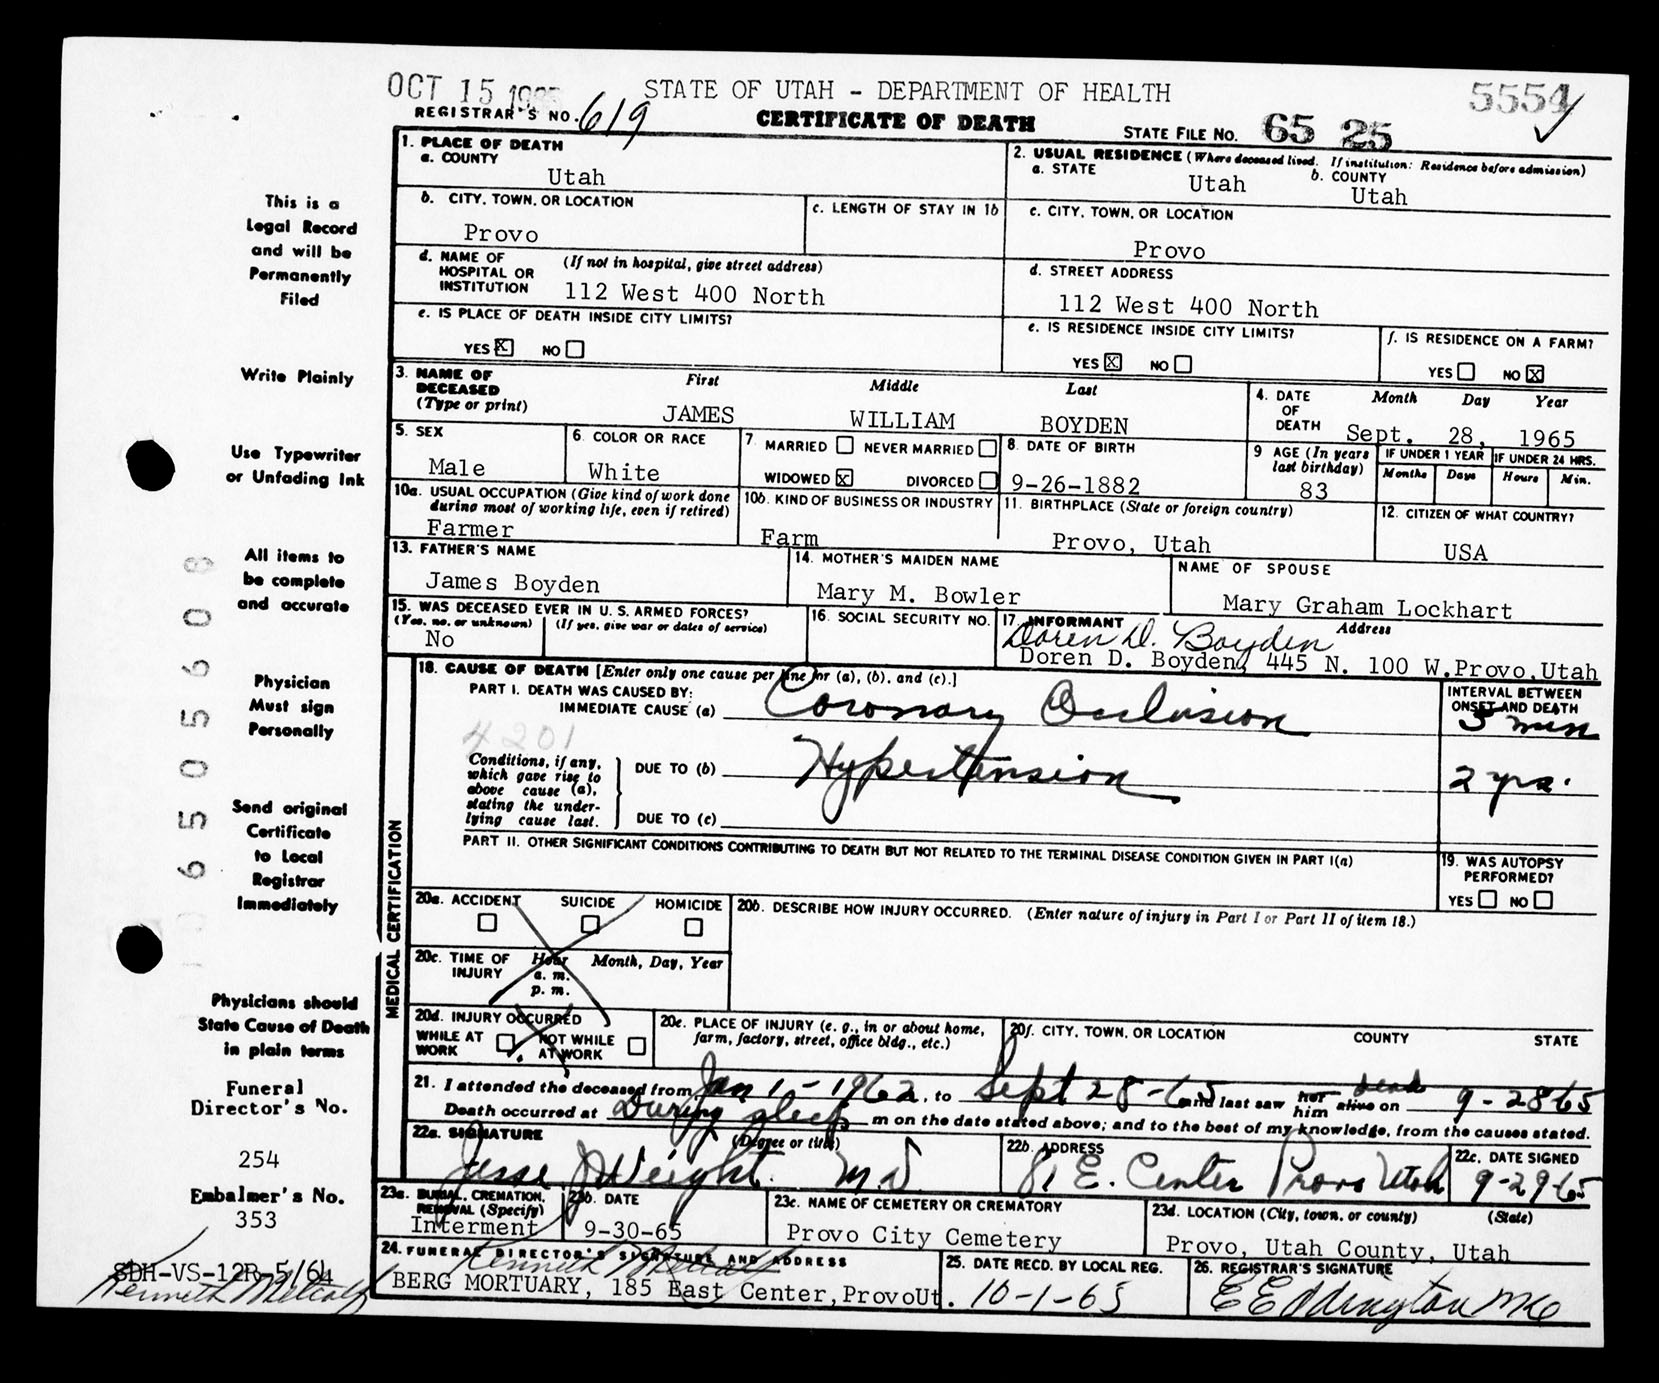 OCT 15 1965 STATE OF UTAH - DEPARTMENT OF HEALTH 5554
REGISTRAR'S NO. 619 CERTIFICATE OF DEATH STATE FILE NO. 65 25
1. PLACE OF DEATH
a. COUNTY
Utah
2. USUAL RESIDENCE (Where deceased lived. If institution: Residence before admission)
a. STATE Utah b. COUNTY Utah
b. CITY, TOWN, OR LOCATION
Provo
c. LENGTH OF STAY IN 1b
c. CITY, TOWN, OR LOCATION
Provo
d. NAME OF HOSPITAL OR INSTITUTION (If not in hospital, give street address)
112 West 400 North
d. STREET ADDRESS
112 West 400 North
e. IS PLACE OF DEATH INSIDE CITY LIMITS?
YES X NO
e. IS RESIDENCE INSIDE CITY LIMITS?
YES X NO
f. IS RESIDENCE ON A FARM?
YES NO X
3. NAME OF DECEASED (Type or print) First Middle Last
JAMES WILLIAM BOYDEN
4. DATE OF DEATH Month Day Year
Sept. 28, 1965
5. SEX
Male
6. COLOR OR RACE
White
7. MARRIED NEVER MARRIED
WIDOWED X DIVORCED
8. DATE OF BIRTH
9-26-1882
9 AGE (In years last birthday)
83
IF UNDER 1 YEAR
Months Days
IF UNDER 24 HRS.
Hours Min.
10a. USUAL OCCUPATION (Give kind of work done during most of working life, even if retired)
Farmer
10b. KIND OF BUSINESS OR INDUSTRY
Farm
11. BIRTHPLACE (State or foreign country)
Provo, Utah
12. CITIZEN OF WHAT COUNTRY?
USA
13. FATHER'S NAME
James Boyden
14. MOTHER'S MAIDEN NAME
Mary M. Bowler
NAME OF SPOUSE
Mary Graham Lockhart
15. WAS DECEASED EVER IN U. S. ARMED FORCES?
(Yes, no, or unknown) (If yes, give war or dates of service)
No
16. SOCIAL SECURITY NO.
17. INFORMANT Address
Doren D. Boyden
Doren D. Boyden, 445 N. 100 W.Provo,Utah
MEDICAL CERTIFICATION
18. CAUSE OF DEATH [Enter only one cause per line for (a), (b), and (c).]
PART I. DEATH WAS CAUSED BY:
IMMEDIATE CAUSE (a) Coronary Occlusion
INTERVAL BETWEEN ONSET AND DEATH
5 min
4201
Conditions, if any, which gave rise to above cause (a), stating the underlying cause last.
DUE TO (b) Hypertension 2 yrs.
DUE TO (c)
PART II. OTHER SIGNIFICANT CONDITIONS CONTRIBUTING TO DEATH BUT NOT RELATED TO THE TERMINAL DISEASE CONDITION GIVEN IN PART I(a)
19. WAS AUTOPSY PERFORMED?
YES NO
20a. ACCIDENT SUICIDE HOMICIDE
20b. DESCRIBE HOW INJURY OCCURRED. (Enter nature of injury in Part I or Part II of item 18.)
20c. TIME OF INJURY Hour Month, Day, Year
a. m.
p. m.
20d. INJURY OCCURRED
WHILE AT WORK NOT WHILE AT WORK
20e. PLACE OF INJURY (e. g., in or about home, farm, factory, street, office bldg., etc.)
20f. CITY, TOWN, OR LOCATION COUNTY STATE
21. I attended the deceased from Jan 1 - 1962, to Sept 28 - 65 and last saw her him alive dead on 9-28-65
Death occurred at During sleep m on the date stated above; and to the best of my knowledge, from the causes stated.
22a. SIGNATURE (Degree or title)
Jesse J Weight MD
22b. ADDRESS
81 E. Center Provo Utah
22c. DATE SIGNED
9-29-65
23a. BURIAL, CREMATION, REMOVAL (Specify)
Interment
23b. DATE
9-30-65
23c. NAME OF CEMETERY OR CREMATORY
Provo City Cemetery
23d. LOCATION (City, town, or county) (State)
Provo, Utah County, Utah
24. FUNERAL DIRECTOR'S SIGNATURE AND ADDRESS
Kenneth Metcalf
BERG MORTUARY, 185 East Center,ProvoUt.
25. DATE RECD. BY LOCAL REG.
10-1-65
26. REGISTRAR'S SIGNATURE
E E Eddington
This is a
Legal Record
and will be
Permanently
Filed
Write Plainly
Use Typewriter
or Unfading Ink
All items to
be complete
and accurate
Physician
Must sign
Personally
Send original
Certificate
to Local
Registrar
Immediately
Physicians should
State Cause of Death
in plain terms
Funeral
Director's No.
254
Embalmer's No.
353
SDH-VS-12R-5/64
Kenneth Metcalf
6505608